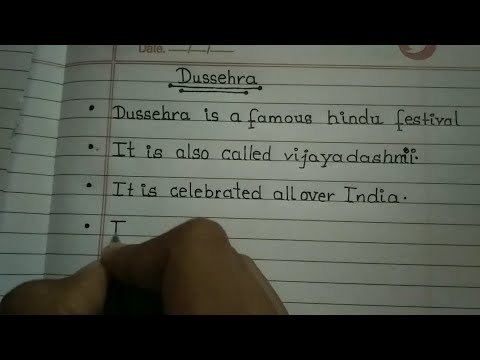 Date. __/__/__
Dussehra
• Dussehra is a famous hindu festival
• It is also called vijayadashmi.
• It is celebrated all over India.
• I